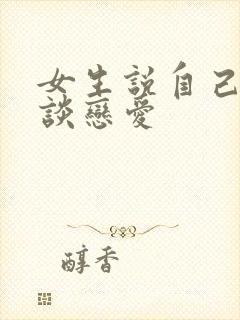 女生說自己
談戀愛
醇香